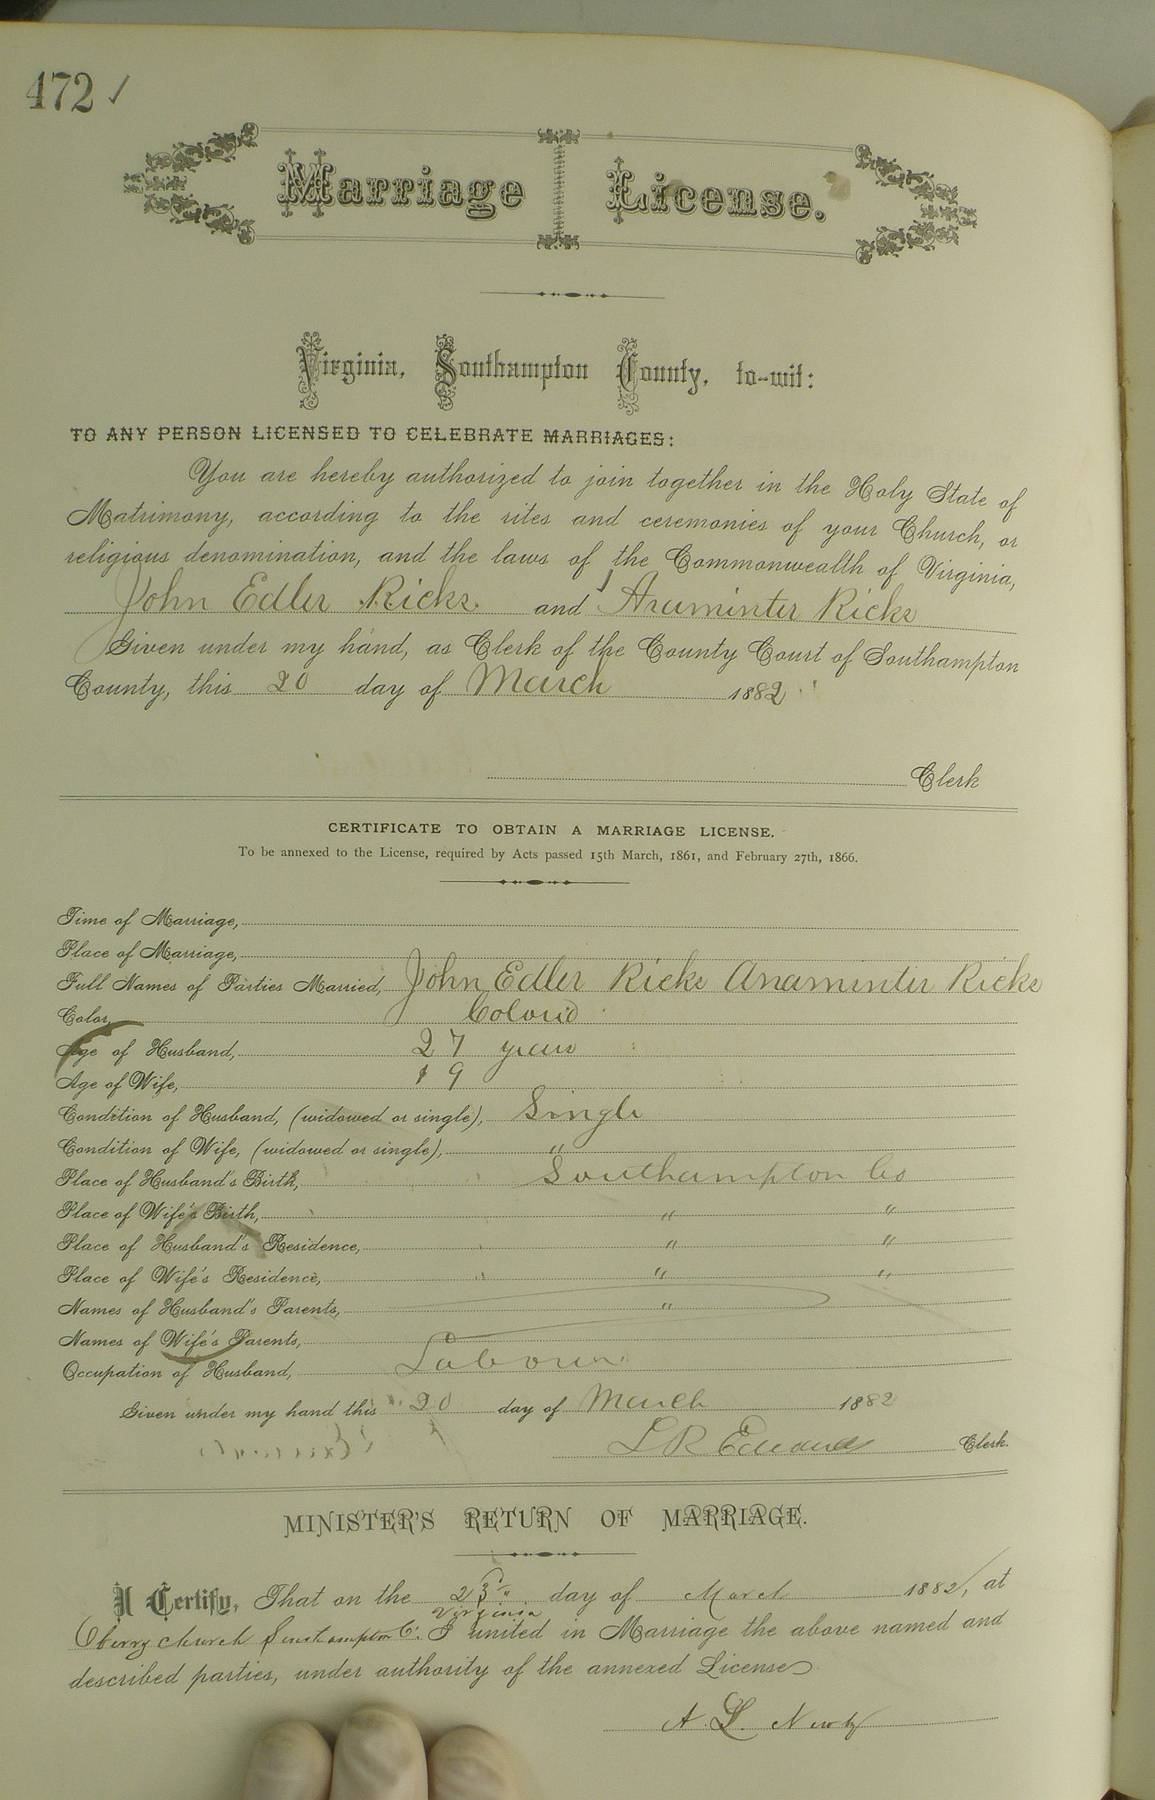 472 ✓
Marriage License.
Virginia, Southampton County, to-wit:
TO ANY PERSON LICENSED TO CELEBRATE MARRIAGES:
You are hereby authorized to join together in the Holy State of
Matrimony, according to the rites and ceremonies of your Church, or
religious denomination, and the laws of the Commonwealth of Virginia,
John Edler Ricks and Araminter Ricks
Given under my hand, as Clerk of the County Court of Southampton
County, this 20 day of March 1882
Clerk
CERTIFICATE TO OBTAIN A MARRIAGE LICENSE.
To be annexed to the License, required by Acts passed 15th March, 1861, and February 27th, 1866.
Time of Marriage,
Place of Marriage,
Full Names of Parties Married, John Edler Ricks Araminter Ricks
Color, Colored
Age of Husband, 27 years
Age of Wife, 19
Condition of Husband, (widowed or single), Single
Condition of Wife, (widowed or single), "
Place of Husband's Birth, Southampton Co
Place of Wife's Birth, " "
Place of Husband's Residence, " "
Place of Wife's Residence, " "
Names of Husband's Parents, "
Names of Wife's Parents,
Occupation of Husband, Laborer
Given under my hand this 20 day of March 1882
L R Edwards Clerk.
MINISTER'S RETURN OF MARRIAGE.
I Certify, That on the 23 day of March 1882, at
Virginia
church Southampton Co. I united in Marriage the above named and
described parties, under authority of the annexed License
A. L. Newby